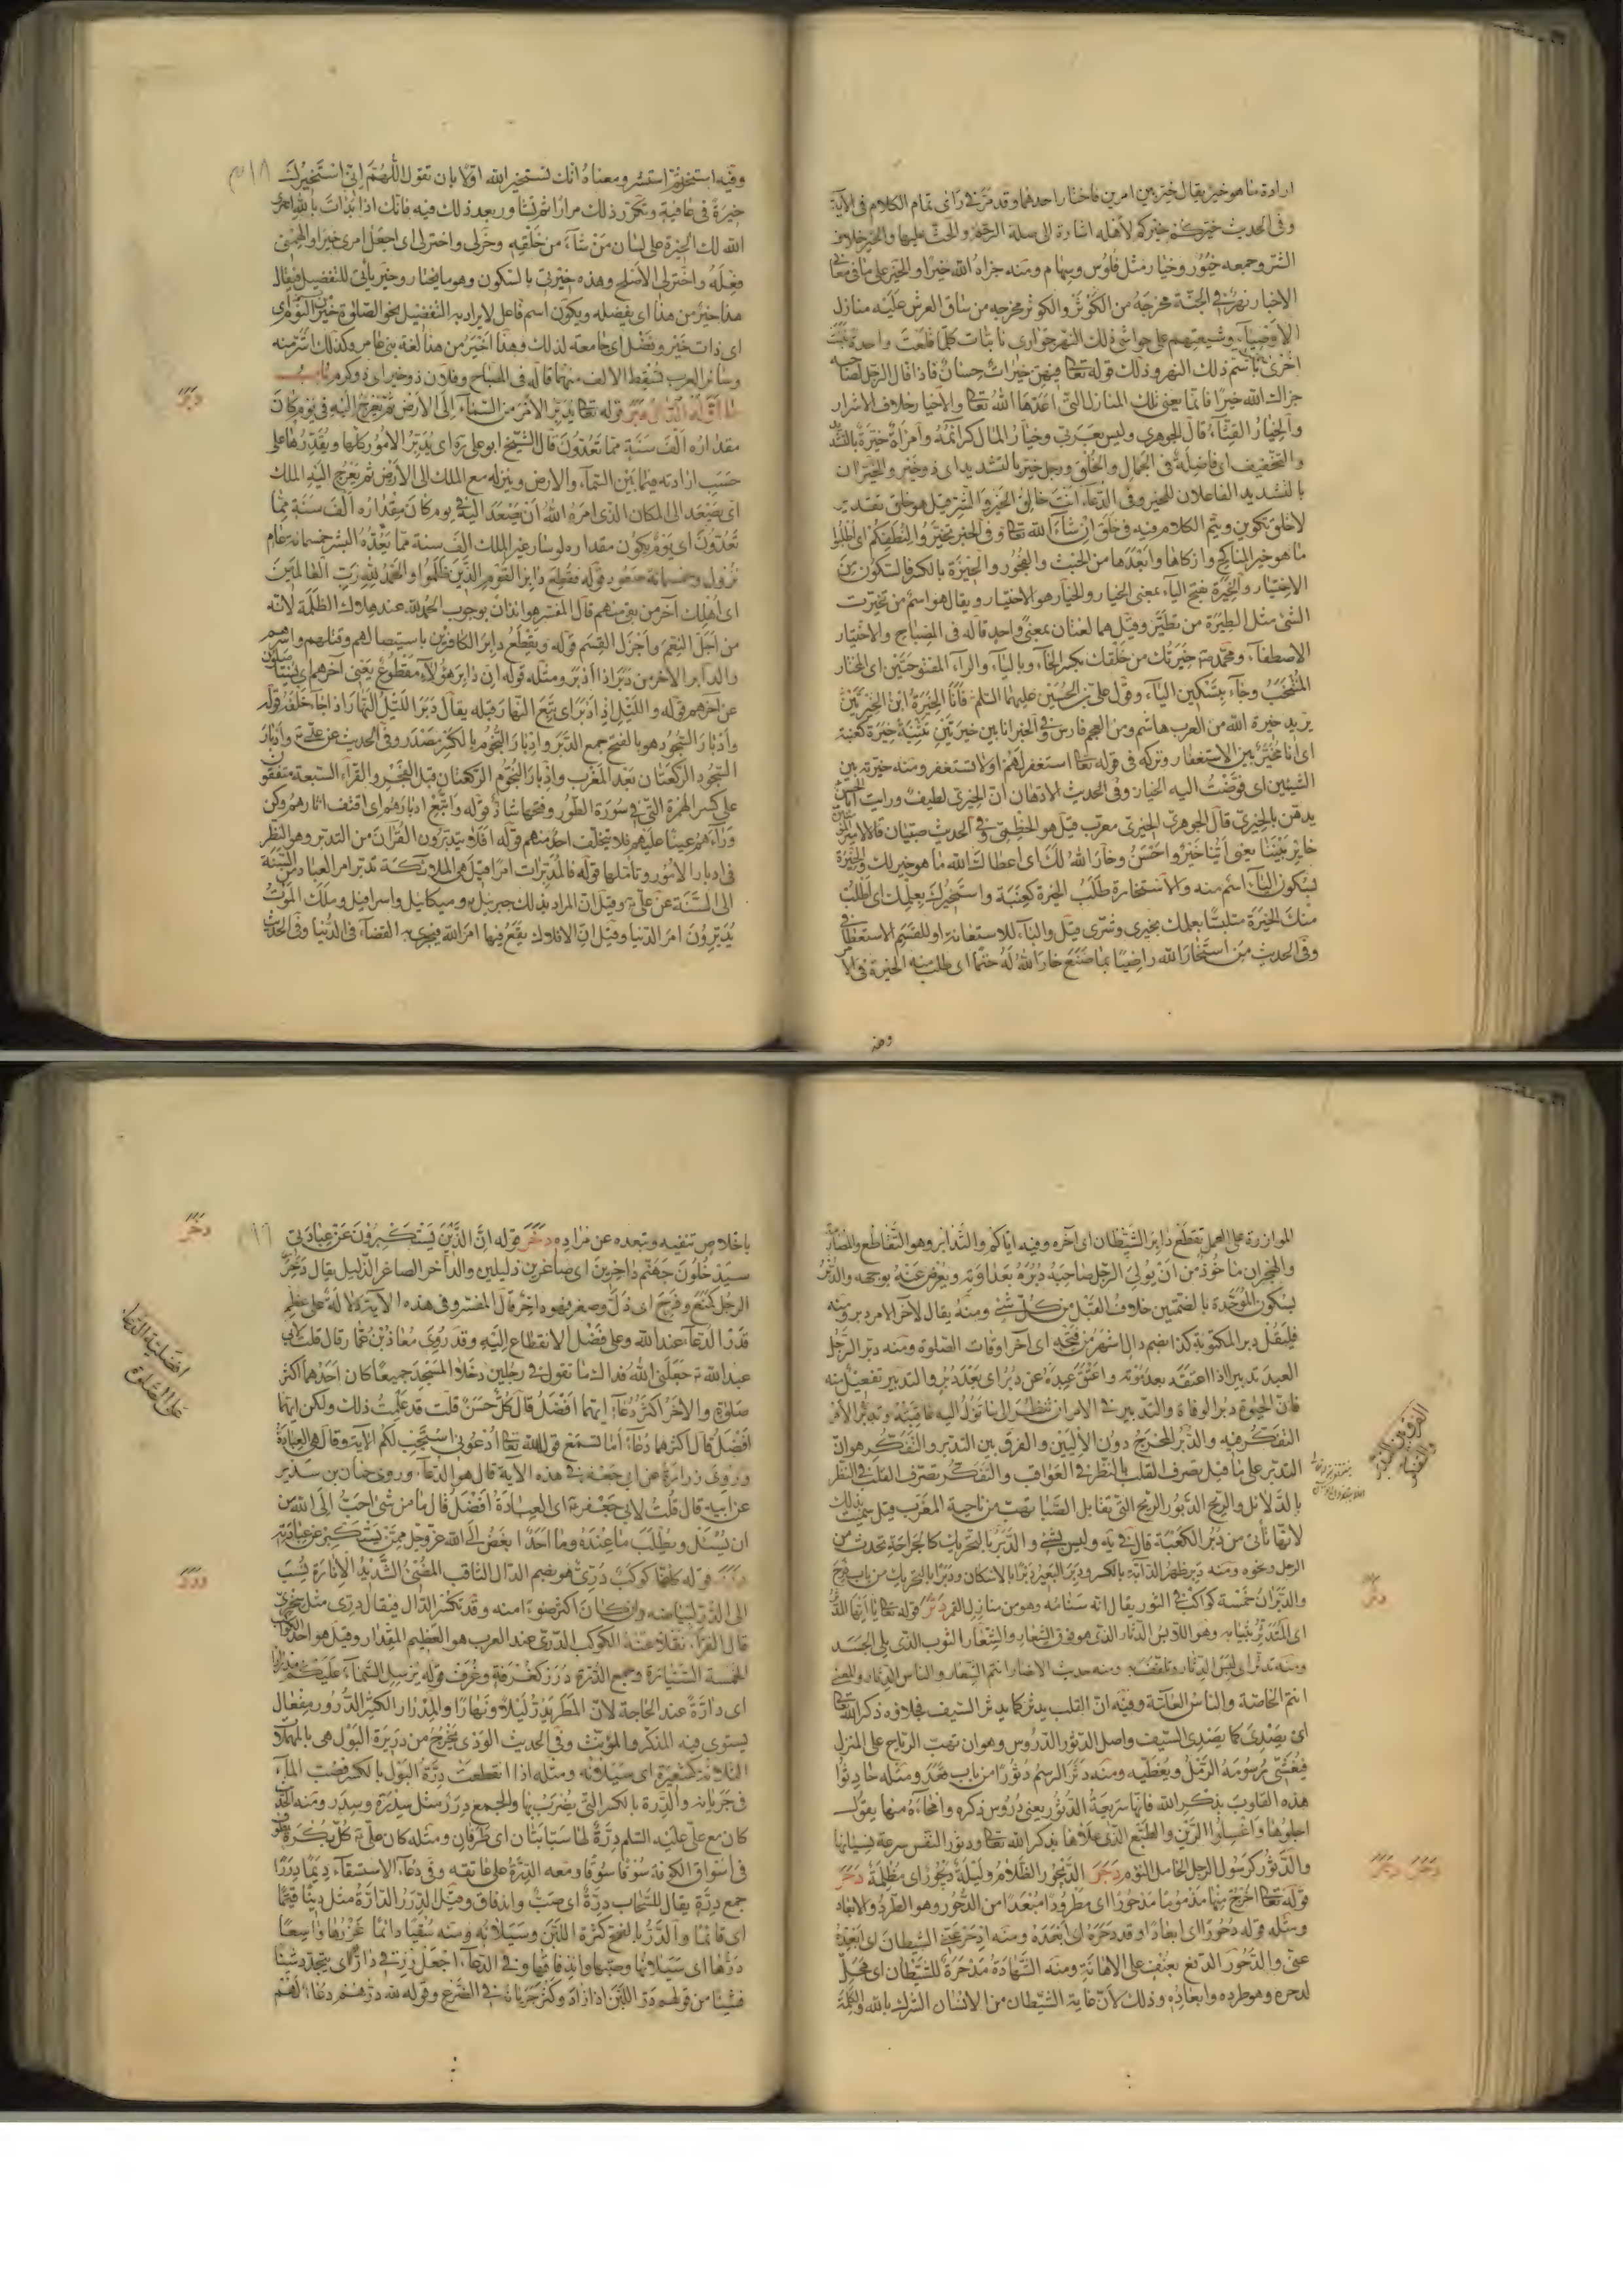 ارادة ما هو خير يقال خير بين امرين فاختار احدهما وقد مر في رأى تمام الكلام فى الآية
وفى الحديث خيركم خيركم لأهله اشارة الى صلة الرحم والحث عليها والخير خلاف
الشر وجمعه خيور وخيار مثل فلوس وسهام ومنه جزاه الله خيرا والخير على ما فى معانى
الاخبار نهر فى الجنة مخرجه من الكوثر والكوثر مخرجه من ساق العرش عليه منازل
الأوصياء وشيعتهم على حواشى ذلك النهر جوارى نابتات كلما قلعت واحدة نبتت
اخرى باسم ذلك النهر وذلك قوله تعالى فيهن خيرات حسان فاذا قال الرجل لصاحبه
جزاك الله خيرا فانما يعنى تلك المنازل التى اعدها الله تعالى والاخيار خلاف الاشرار
والخيار القثاء قال الجوهرى وليس بعربى وخيار المال كرائمه وامرأة خيرة بالتشديد
والتخفيف اى فاضلة فى الجمال والخلق ورجل خير بالتشديد اى ذو خير والخيران
بالتشديد الفاعلان للخير وفى الدعاء انت خالق الخير والشر قيل هو خلق تقدير
لا خلق تكوين ويتم الكلام فيه فى خلق ان شاء الله تعالى وفى الخبر تخيروا لنطفكم اى اطلبوا
ما هو خير المناكح وازكاها وابعدها من الخبث والفجور والخيرة بالكسر فالسكون من
الاختيار والخيرة بفتح الياء بمعنى الخيار والخيار هو الاختيار ويقال هو اسم من تخيرت
الشئ مثل الطيرة من تطير وقيل هما لغتان بمعنى واحد قاله فى المصباح والاختيار
الاصطفاء ومحمد خيرتك من خلقك بكسر الخاء وبالياء والراء المفتوحتين اى المختار
المنتجب وجاء بتسكين الياء وقول على بن الحسين عليهما السلم فانا الخيرة ابن الخيرتين
يريد خيرة الله من العرب هاشم ومن العجم فارس وفى الخبر انا بين خيرتين تثنية خيرة كعنبة
اى انا مخير بين الاستغفار وتركه فى قوله تعالى استغفر لهم او لا تستغفر ومنه خيرته بين
الشيئين اى فوضت اليه الخيار وفى الحديث الادهان ان الخيرى لطيف ورايت ابا الحسن
يدهن بالخيرى قال الجوهرى الخيرى معرب قيل هو الخطمى وفى الحديث صبيان قالا لامير المؤمنين
خاير بيننا يعنى اينا خير واحسن وخار الله لك اى اعطاك الله ما هو خير لك والخيرة
بسكون الياء اسم منه والاستخارة طلب الخيرة كعنبة واستخيرك بعلمك اى اطلب
منك الخيرة متلبسا بعلمك بخيرى وشرى قيل والباء للاستعانة او للقسم الاستعطافى
وفى الحديث من استخار الله راضيا بما صنع خار الله له حتما اى طلب منه الخيرة فى الامر
وفيه
وفيه استخر ثم استشر ومعناه انك تستخير الله اولا بان تقول اللهم انى استخيرك
خيرة فى عافية وتكرر ذلك مرارا ثم تشاور بعد ذلك فيه فانك اذا بدأت بالله اجرى
الله لك الخيرة على لسان من شاء من خلقه وخر لى واختر لى اى اجعل امرى خيرا والهمنى
فعله واختر لى الاصلح وهذه خيرتى بالسكون وهو ما يختار وخير يأتى للتفضيل فيقال
هذا خير من هذا اى يفضله ويكون اسم فاعل لا يراد به التفضيل نحو الصلوة خير من النوم اى
اى ذات خير وفضل اى جامعة لذلك وهذا اخير من هذا لغة بنى عامر وكذلك اشر منه
وسائر العرب تسقط الالف منهما قاله فى المصباح وفلان ذو خير اى ذو كرم باب
ما اوله الدال دبر قوله تعالى يدبر الامر من السماء الى الارض ثم يعرج اليه فى يوم كان
دبر
مقداره الف سنة مما تعدون قال الشيخ ابو على ره اى يدبر الامور كلها ويقدرها على
حسب ارادته فيما بين السماء والارض وينزله مع الملك الى الارض ثم يعرج اليه الملك
اى يصعد الى المكان الذى امره الله ان يصعد اليه فى يوم كان مقداره الف سنة مما
تعدون اى يوم يكون مقداره لو ساره غير الملك الف سنة مما يعده البشر خمسمائة عام
نزول وخمسمائة صعود قوله فقطع دابر القوم الذين ظلموا والحمد لله رب العالمين
اى اهلك آخر من بقى منهم قال المفسر هو ايذان بوجوب الحمد لله عند هلاك الظلمة لانه
من اجل النعم واجزل القسم قوله ويقطع دابر الكافرين باستيصالهم وقتلهم واسرهم
والدابر الآخر من دبر اذا ادبر ومثله قوله ان دابر هؤلاء مقطوع يعنى آخرهم اى يستأصلون
عن آخرهم قوله والليل اذ ادبر اى تبع النهار قبله يقال دبر الليل النهار اذا جاء خلفه قوله
وأدبار السجود هو بالفتح جمع الدبر وادبار النجوم بالكسر مصدر وفى الحديث عن على وادبار
السجود الركعتان بعد المغرب وادبار النجوم الركعتان قبل الفجر والقراء السبعة متفقو
على كسر الهمزة التى فى سورة الطور وفتحها شاذ قوله واتبع ادبارهم اى اقتف اثارهم وكن
وراءهم عينا عليهم فلا يتخلف احد منهم قوله افلا يتدبرون القرآن من التدبر وهو النظر
فى ادبار الامور وتأملها قوله فالمدبرات امرا قيل هى الملائكة تدبر امر العباد من السنة
الى السنة عن على وقيل ان المراد بذلك جبرئيل وميكائيل واسرافيل وملك الموت
يدبرون امر الدنيا وقيل انها الافلاك يقع فيها امر الله فيجرى به القضاء فى الدنيا وفى الحديث
الموازرة على العمل تقطع دابر الشيطان اى آخره وفيه اياكم والتدابر وهو التقاطع والمصارمة
والهجران مأخوذ من ان يولى الرجل صاحبه دبره بعداوته ويعرض عنه بوجهه والدبر
بسكون الموحدة بالضمتين خلاف القبل من كل شئ ومنه يقال لآخر الامر دبر ومنه
فليقل دبر المكتوبة كذا بضم دال اشهر من فتحه اى آخر اوقات الصلوة ومنه دبر الرجل
العبد تدبيرا اذا اعتقه بعد موته واعتق عبده عن دبر اى بعد دبر والتدبير تفعيل منه
فان الحيوة دبر الوفاة والتدبير فى الامر ان تنظر الى ما تؤل اليه عاقبته وتدبر الامر
التفكر فيه والدبر المخرج دون الأليين والفرق بين التدبر والتفكر هو ان
التدبر على ما قيل تصرف القلب بالنظر فى العواقب والتفكر تصرف القلب فى النظر
بالدلائل والريح الدبور الريح التى تقابل الصبا تهب من ناحية المغرب قيل سميت بذلك
لانها تأتى من دبر الكعبة قال فى يه وليس بشئ والدبر بالتحريك كالجراحة تحدث من
الرحل ونحوه ومنه دبر ظهر الدابة بالكسر ودبر البعير دبرا بالاسكان ودبرا بالتحريك من باب فرح
والدبران خمسة كواكب فى الثور يقال انه سنامه وهو من منازل القمر دثر قوله تعالى يا ايها المدثر
اى المتدثر بثيابه وهو اللابس الدثار الذى هو فوق الشعار والشعار الثوب الذى يلى الجسد
ومنه تدثر اى لبس الدثار وتلفف به ومنه حديث الانصار انتم الشعار والناس الدثار والمعنى
انتم الخاصة والناس العامة وفيه ان القلب يدثر كما يدثر السيف فجلاؤه ذكر الله تعالى
اى يصدى كما يصدى السيف واصل الدثور الدروس وهو ان تهب الرياح على المنزل
فيغشى رسومه الرمل ويغطيه ومنه دثر الرسم دثورا من باب قعد ومثله حادثوا
هذه القلوب بذكر الله فانها سريعة الدثور يعنى دروس ذكره وامحاءه منها يقول
اجلوها واغسلوا الرين والطبع الذى علاها بذكر الله تعالى ودثور النفس سرعة نسيانها
والدثور كرسول الرجل الخامل النؤم دجر الديجور الظلام وليلة ديجور اى مظلمة دحر
قوله تعالى اخرج منها مذموما مدحورا اى مطرودا مبعدا من الدحور وهو الطرد والابعاد
ومثله قوله دحورا اى ابعادا وقد دحره اى ابعده ومنه ادحر عنى الشيطان اى ابعده
عنى والدحور الدفع بعنف على الاهانة ومنه الشهادة مدحرة للشيطان اى محل
لدحره وهو طرده وابعاده وذلك لأن غاية الشيطان من الانسان الشرك بالله والكلمة
الفرق بين التدبر
والتفكر
دثر
دجر دحر
باخلاص تنفيه وتبعده عن مراده دخر قوله ان الذين يستكبرون عن عبادتى
دخر
سيدخلون جهنم داخرين اى صاغرين ذليلين والداخر الصاغر الذليل يقال دخر
الرجل كمنع وفرح اى ذل وصغر فهو داخر قال المفسر وفى هذه الآية دلالة على عظم
قدر الدعاء عند الله وعلى فضل الانقطاع اليه وقد روى معاذ بن عمار قال قلت لابى
عبد الله جعلنى الله فداك ما تقول فى رجلين دخلا المسجد جميعا كان احدهما اكثر
صلوة والآخر اكثر دعاء ايهما افضل قال كل حسن قلت قد علمت ذلك ولكن ايهما
افضل قال اكثرهما دعاء اما تسمع قول الله تعالى ادعونى استجب لكم الآية وقال هى العبادة
وروى زرارة عن ابى جعفر فى هذه الآية قال هو الدعاء وروى حنان بن سدير
عن ابيه قال قلت لابى جعفر اى العبادة افضل قال ما من شئ احب الى الله من
ان يسئل ويطلب ما عنده وما احد ابغض الى الله عز وجل ممن يستكبر عن عبادته
افضلية الدعاء
على الصلوة
درر قوله كانها كوكب درى هو بضم الدال الثاقب المضئ الشديد الانارة نسب
درر
الى الدر لبياضه وان كان اكثر ضوءا منه وقد تكسر الدال فيقال درى مثل سخرى
قال الفراء نقلا عنه الكوكب الدرى عند العرب هو العظيم المقدار وقيل هو احد الكواكب
الخمسة السيارة وجمع الدرة درر كغرفة وغرف قوله يرسل السماء عليكم مدرارا
اى دارة عند الحاجة لان المطر يدر ليلا ونهارا والمدرار الكثير الدرور مفعال
يستوى فيه المذكر والمؤنث وفى الحديث الوذى يخرج من دريرة البول هى بالمهملات
الثلاثة كشعيرة اى سيلانه ومثله اذا انقطعت درة البول بالكسر فصب الماء
فى جريانه والدرة بالكسر التى يضرب بها والجمع درر مثل سدرة وسدر ومنه الحديث
كان مع على عليه السلم درة لها سبابتان اى طرفان ومثله كان على كل بكرة يطوف
فى اسواق الكوفة سوقا سوقا ومعه الدرة على عاتقه وفى دعاء الاستسقاء ديما دررا
جمع درة يقال للسحاب درة اى صب واندفاق وقيل الدرر الدارة مثل دينا قيما
اى قائما والدر بالفتح كثرة اللبن وسيلانه ومنه سقيا دائما غزرها واسعا
درها اى سيلانها وصبها واندفاقها وفى الدعاء اجعل رزقى دارا اى يتجدد شيئا
فشيئا من قولهم در اللبن اذا زاد وكثر جريانه فى الضرع وقوله لله درهم دعاء لهم